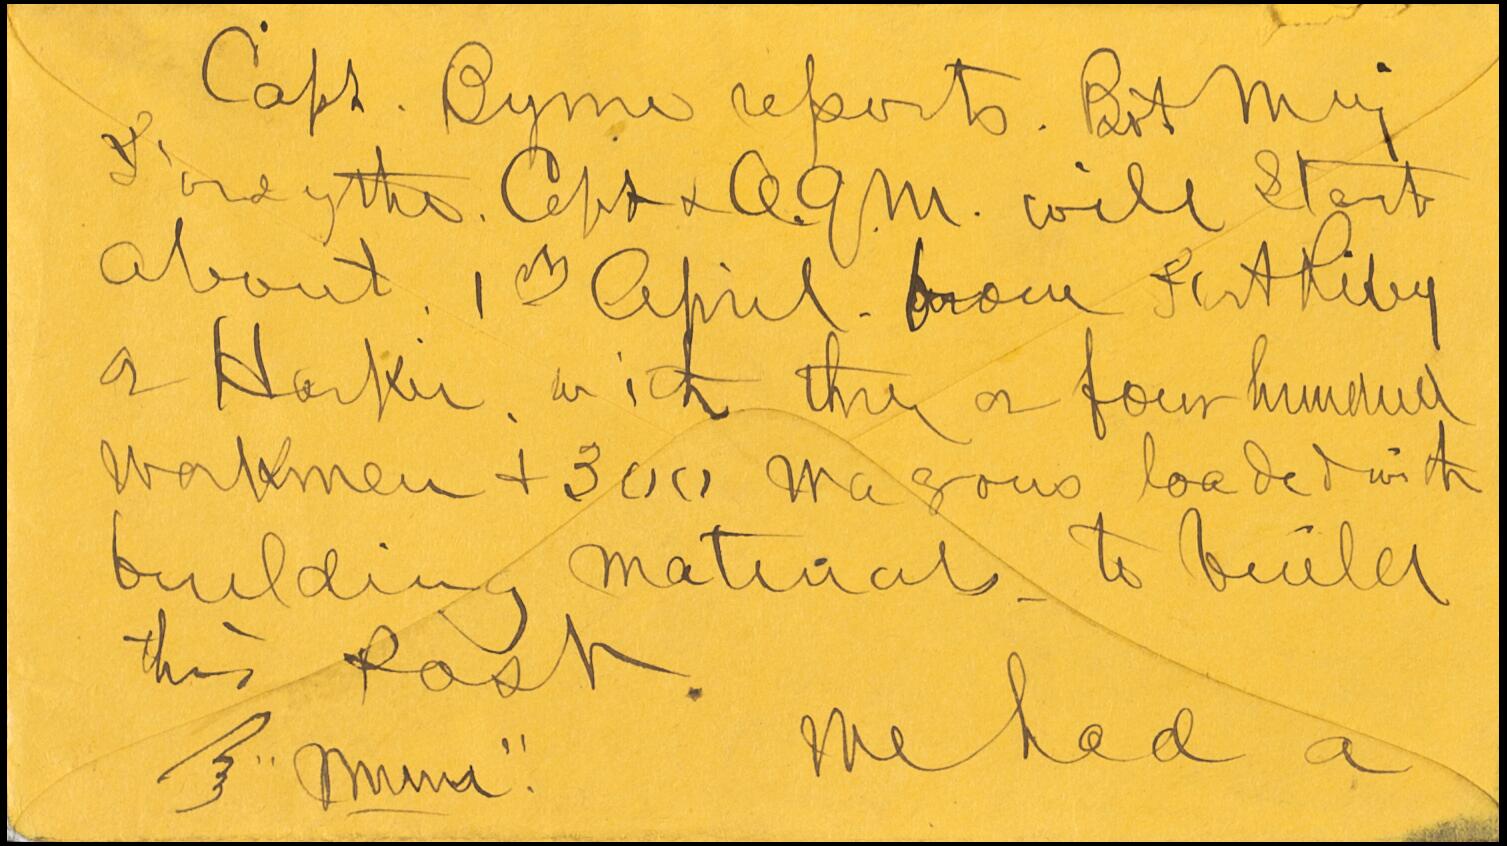 Capt. Byrne reports. Bvt Maj
Forsythe. Capt & A.Q.M. will start
about. 1st April. from Fort Riley
or Harker. with three or four hundred
workmen + 300 wagons loaded with
building materials - to build
this Post.
We had a